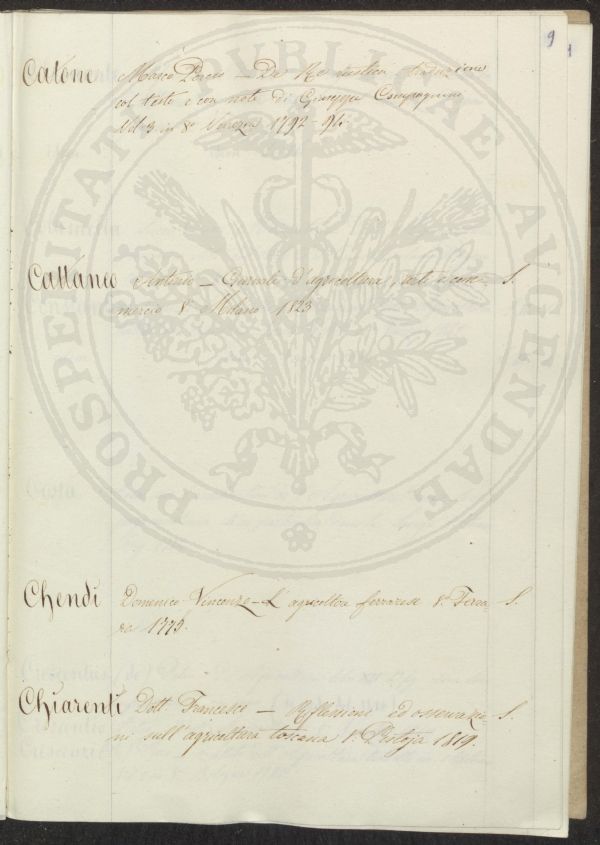 9
1
Catone Marco Porcio – De Re rustica traduzione
col testo e con note di Giuseppe Compagnoni
Vol. 3. in 8° Venezia 1792-94.
Cattaneo Antonio – Giornale d'agricoltura, arti e com- S.
mercio 8° Milano 1823
Chendi Domenico Vincenzo – L'agricoltor ferrarese 8. Ferra- S.
ra 1775.
Chiarenti Dott. Francesco – Riflessioni ed osservazio- S.
ni sull'agricoltura toscana 8. Pistoja 1819.
PROSPERITATI PUBLICAE AUGENDAE